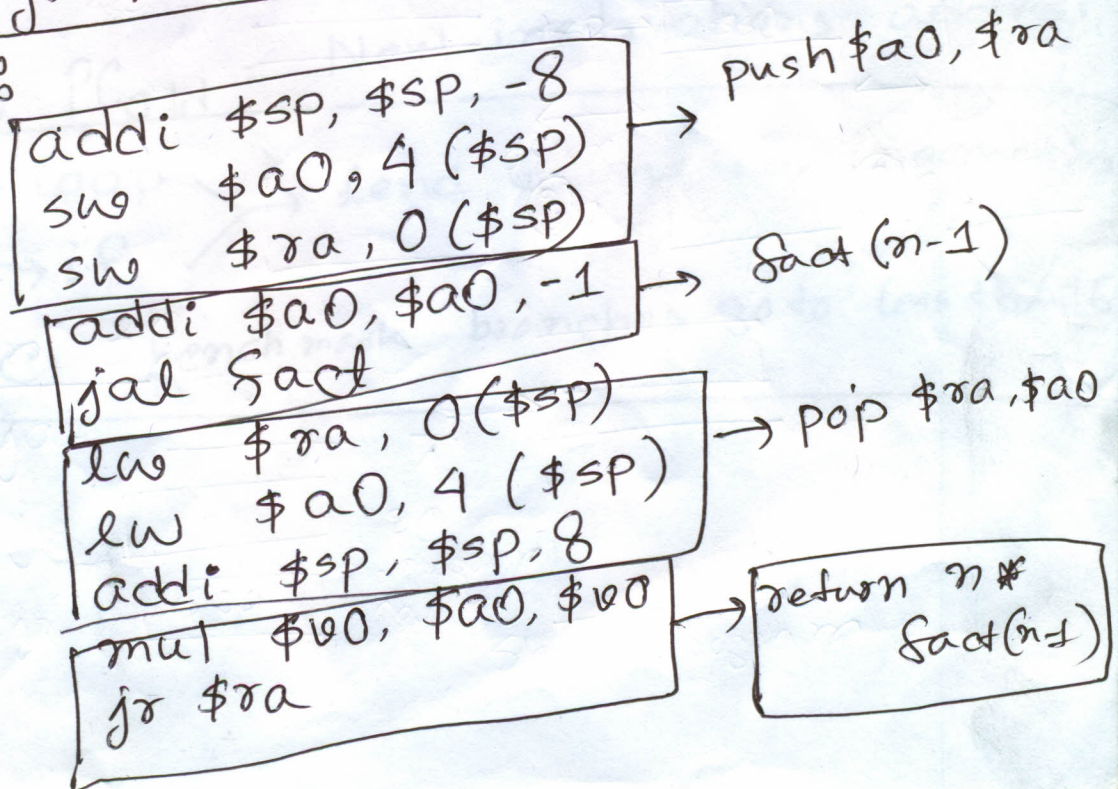 addi $sp, $sp, -8
sw $a0, 4 ($sp)
sw $ra, 0 ($sp)
push $a0, $ra
addi $a0, $a0, -1
jal fact
fact (n-1)
lw $ra, 0 ($sp)
lw $a0, 4 ($sp)
addi $sp, $sp, 8
pop $ra, $a0
mul $v0, $a0, $v0
jr $ra
return n *
fact(n-1)